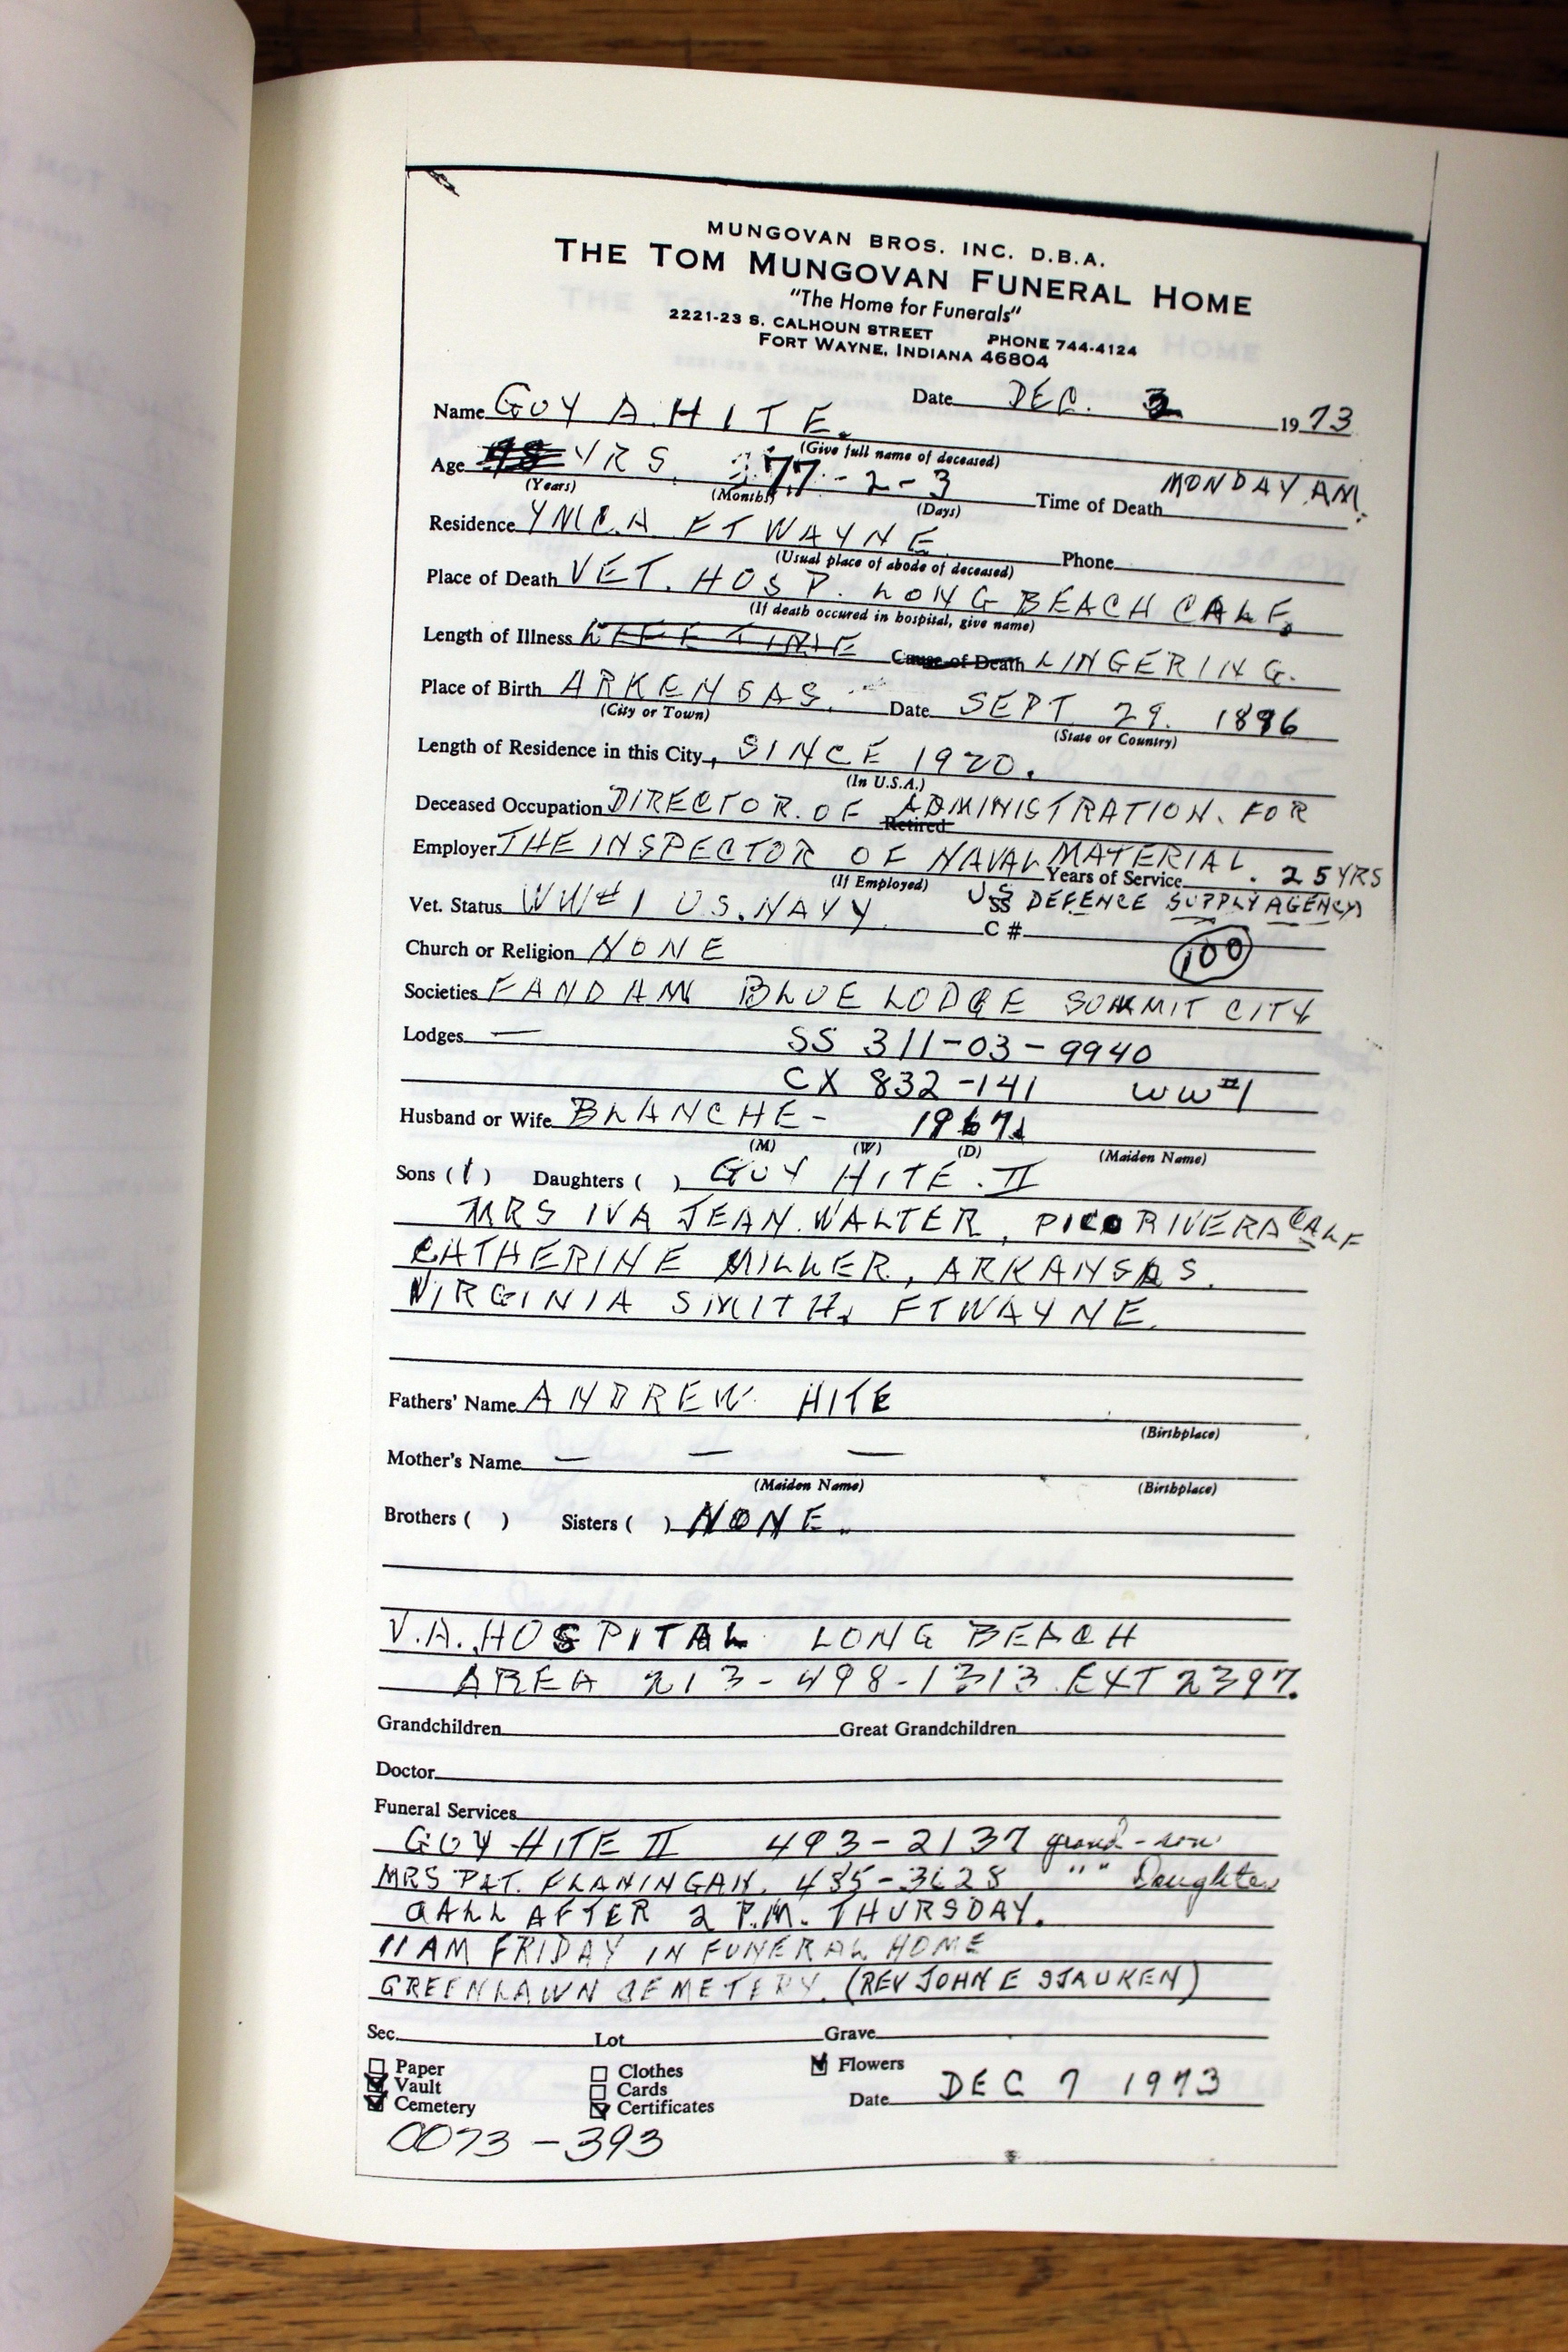 MUNGOVAN BROS. INC. D.B.A.
THE TOM MUNGOVAN FUNERAL HOME
"The Home for Funerals"
2221-23 S. CALHOUN STREET PHONE 744-4124
FORT WAYNE, INDIANA 46804
Name GUY A. HITE. Date DEC. 3 1973
(Give full name of deceased)
Age YRS. 77-2-3 Time of Death MONDAY AM.
(Years) (Months) (Days)
Residence YMCA FT WAYNE Phone
(Usual place of abode of deceased)
Place of Death VET. HOSP. LONG BEACH CALF.
(If death occured in hospital, give name)
Length of Illness LIFE TIME Cause of Death LINGERING.
Place of Birth ARKENSAS. Date SEPT 29. 1896
(City or Town) (State or Country)
Length of Residence in this City, SINCE 1920.
(In U.S.A.)
Deceased Occupation DIRECTOR. OF ADMINISTRATION. FOR
Retired
Employer THE INSPECTOR OF NAVAL MATERIAL. Years of Service 25 YRS
(If Employed)
Vet. Status WW#1 U.S. NAVY. US DEFENCE SUPPLY AGENCY
SS
C #
Church or Religion NONE 100
Societies F AND AM BLUE LODGE SUMMIT CITY
Lodges — SS 311-03-9940
CX 832-141 WW#1
Husband or Wife BLANCHE - 1967
(M) (W) (D) (Maiden Name)
Sons (1) Daughters ( ) GUY HITE. II
MRS IVA JEAN WALTER, PICO RIVERA CALF
CATHERINE MILLER, ARKANSAS.
VIRGINIA SMITH, FT WAYNE.
Fathers' Name ANDREW HITE
(Birthplace)
Mother's Name — — —
(Maiden Name) (Birthplace)
Brothers ( ) Sisters ( ) NONE.
V.A. HOSPITAL LONG BEACH
AREA 213-498-1313 EXT 2397.
Grandchildren Great Grandchildren
Doctor
Funeral Services
GUY HITE II 493-2137 grand-son
MRS PAT. FLANINGAN. 485-3628 " " Daughter
CALL AFTER 2 P.M. THURSDAY.
11 AM FRIDAY IN FUNERAL HOME
GREENLAWN CEMETERY. (REV JOHN E STAUKEN)
Sec. Lot Grave
Paper Clothes Flowers
Vault Cards Date DEC 7 1973
Cemetery Certificates
0073-393